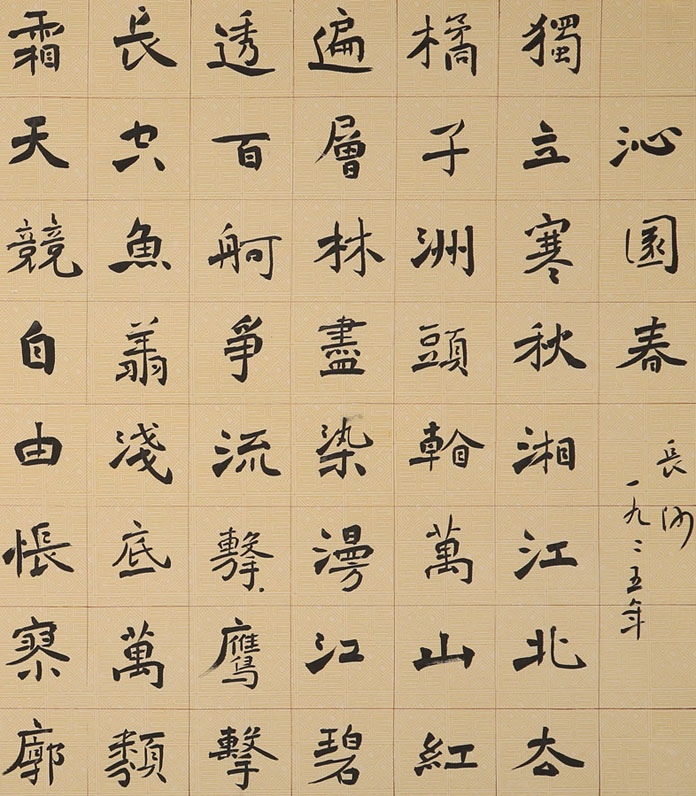 沁園春
長沙
一九二五年
獨立寒秋湘江北去
橘子洲頭看萬山紅
遍層林盡染漫江碧
透百舸爭流擊鷹擊
長空魚翔淺底萬類
霜天競自由悵寥廓